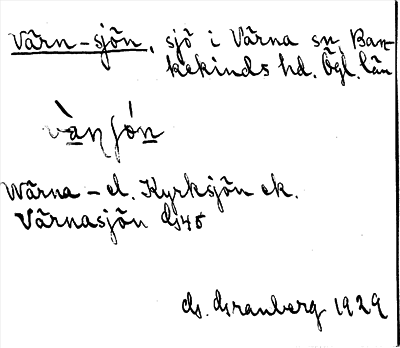 Värn-sjön, sjö i Värna sn, Ban-
kekinds hd. Ögl. län
vànsjón
Wärna- el. Kyrksjön ek.
Värnasjön GS45
G. Granberg 1929